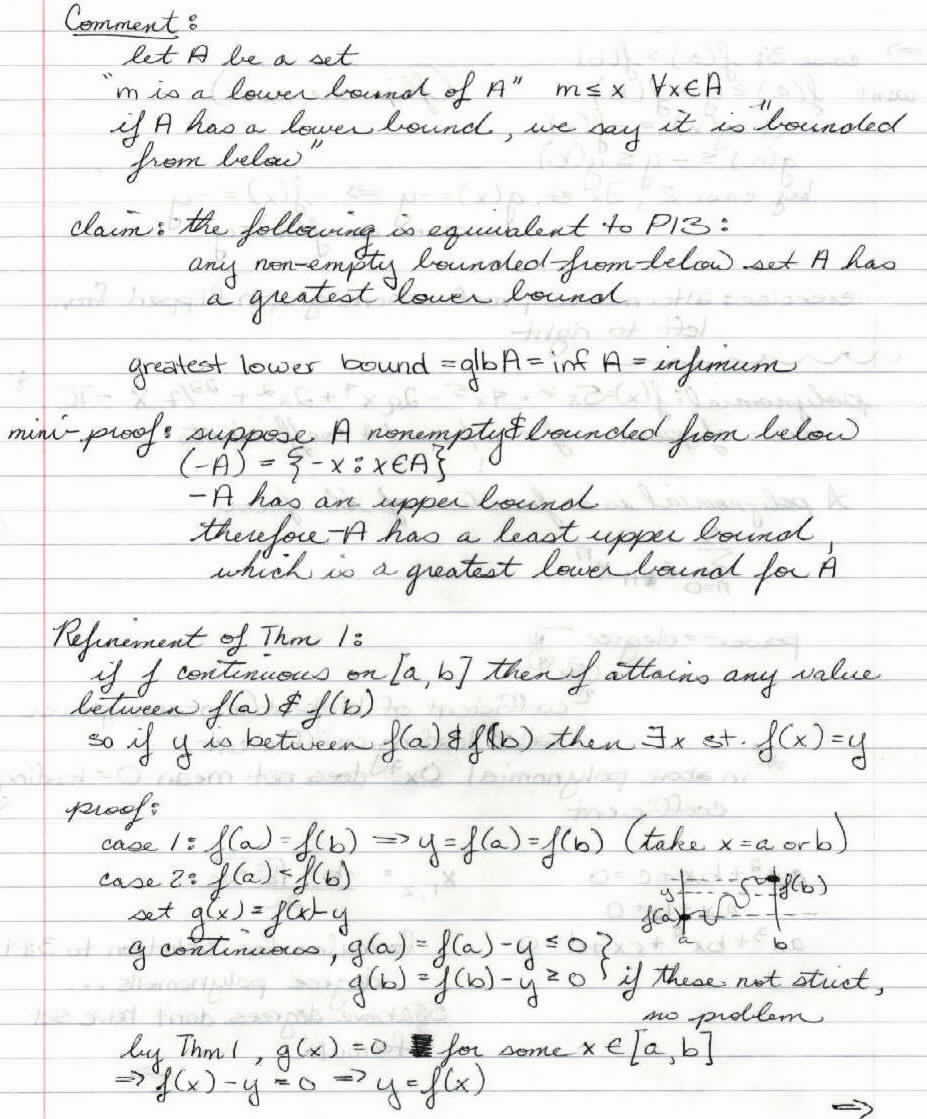 Comment:
let A be a set
"m is a lower bound of A" m ≤ x ∀x∈A
if A has a lower bound, we say it is "bounded
from below"
claim: the following is equivalent to P13:
any non-empty bounded-from-below set A has
a greatest lower bound
greatest lower bound = glbA = inf A = infimum
mini-proof: suppose A nonempty & bounded from below
(-A) = {-x : x∈A}
-A has an upper bound
therefore -A has a least upper bound,
which is a greatest lower bound for A
Refinement of Thm 1:
if f continuous on [a,b] then f attains any value
between f(a) & f(b)
so if y is between f(a) & f(b) then ∃x st. f(x)=y
proof:
case 1: f(a) = f(b) ⇒ y = f(a) = f(b) (take x=a or b)
case 2: f(a) < f(b)
y f(b)
set g(x) = f(x)-y
f(a)
a b
g continuous, g(a) = f(a)-y ≤ 0 }
g(b) = f(b)-y ≥ 0 } if these not strict,
no problem
by Thm 1, g(x) = 0 for some x ∈ [a,b]
⇒ f(x)-y = 0 ⇒ y = f(x)
⇒